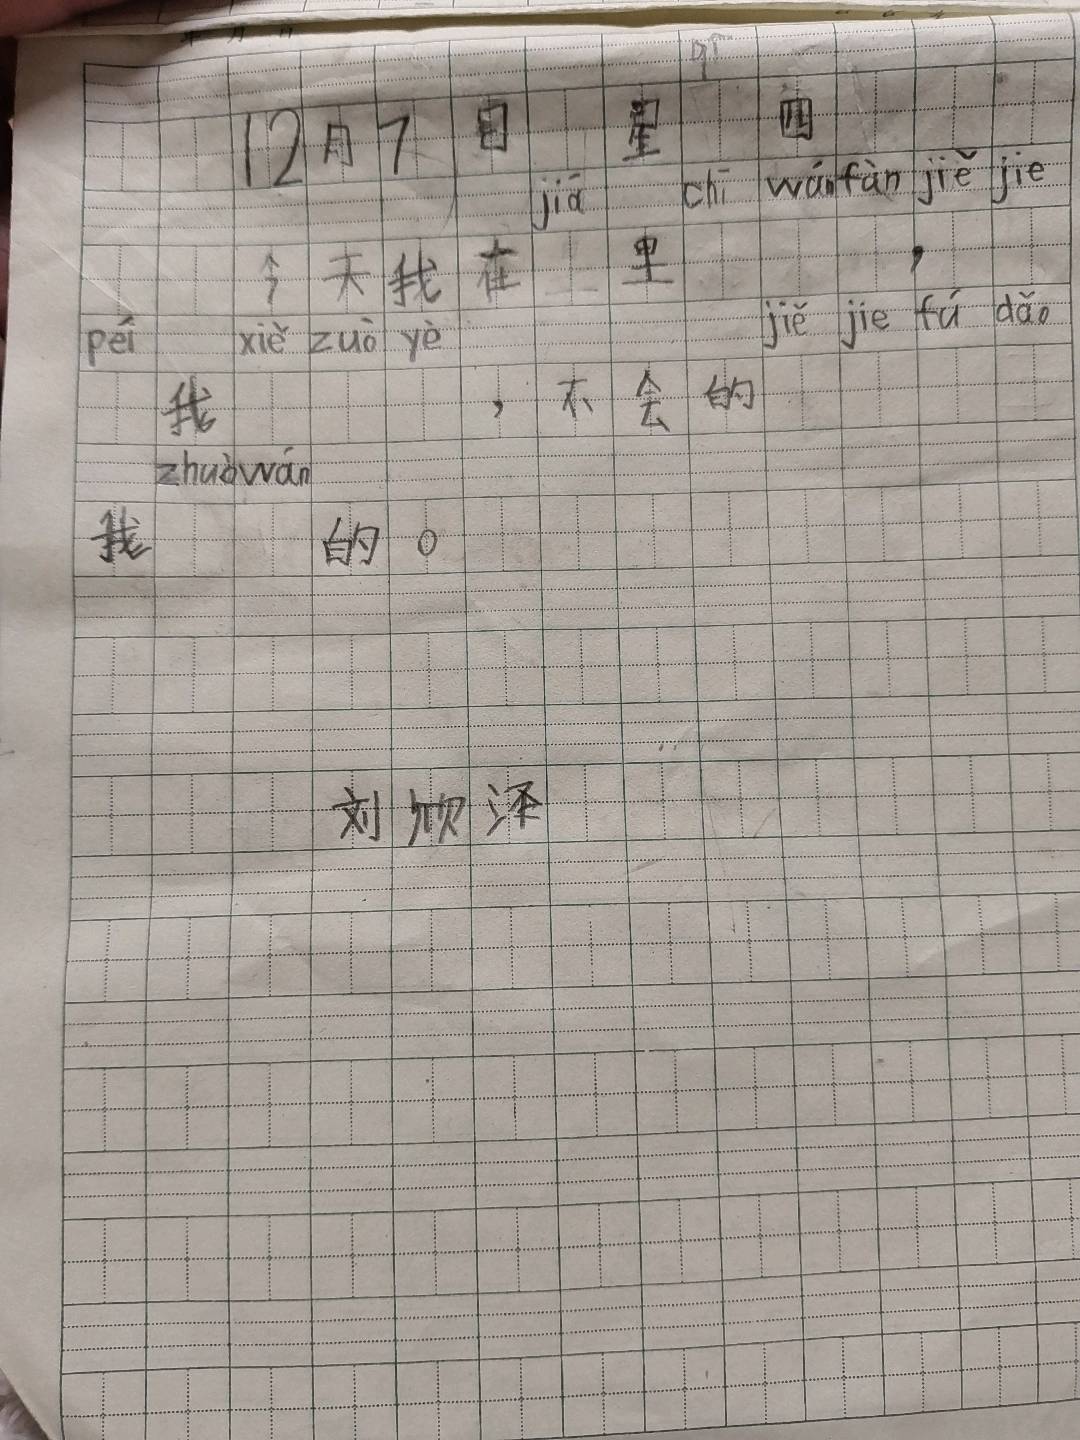 12月7日 星 四
jiá chī wán fàn jiě jie
今天我在 里 ，
péi xiě zuò yè jiě jie fú dǎo
我 ，不会的
zhuò wán
我 的。
刘欣泽